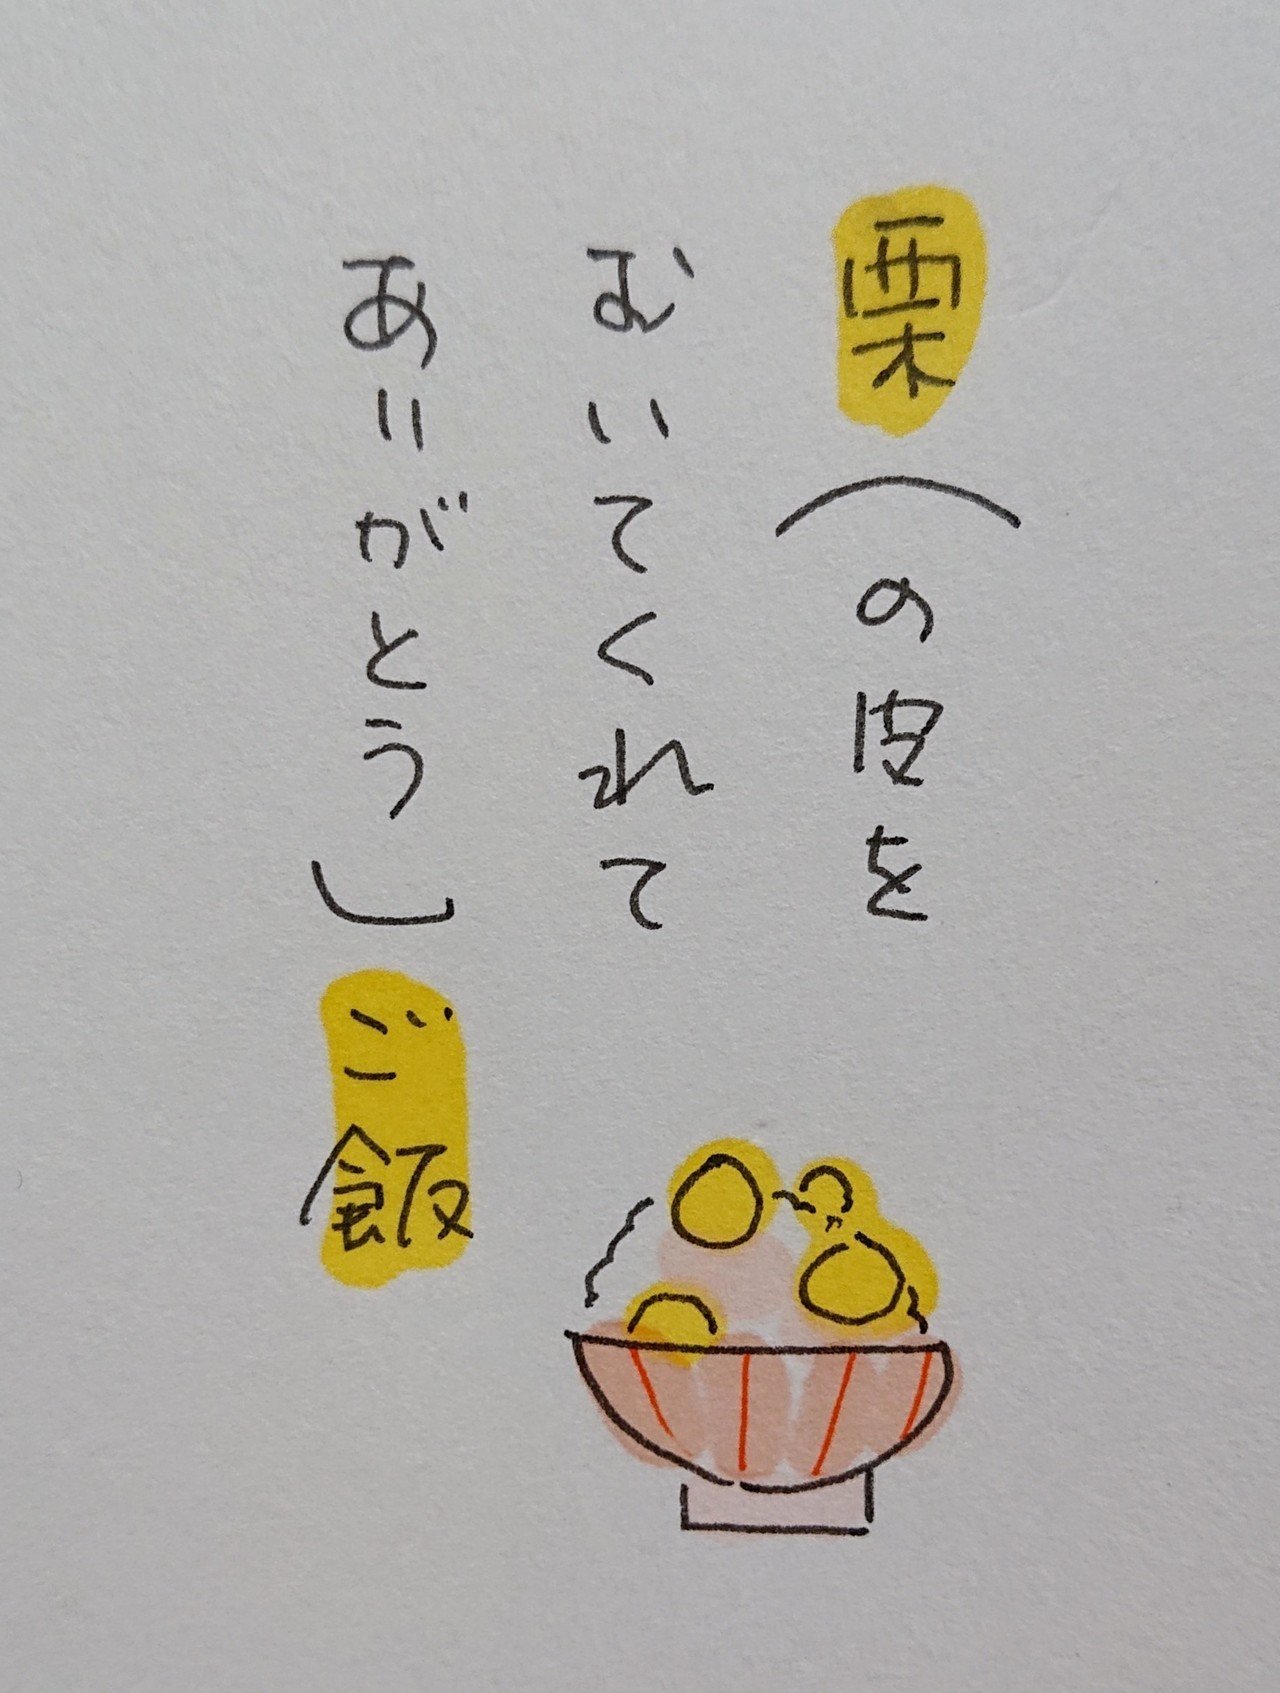 栗(の皮を
むいてくれて
ありがとう)ご飯